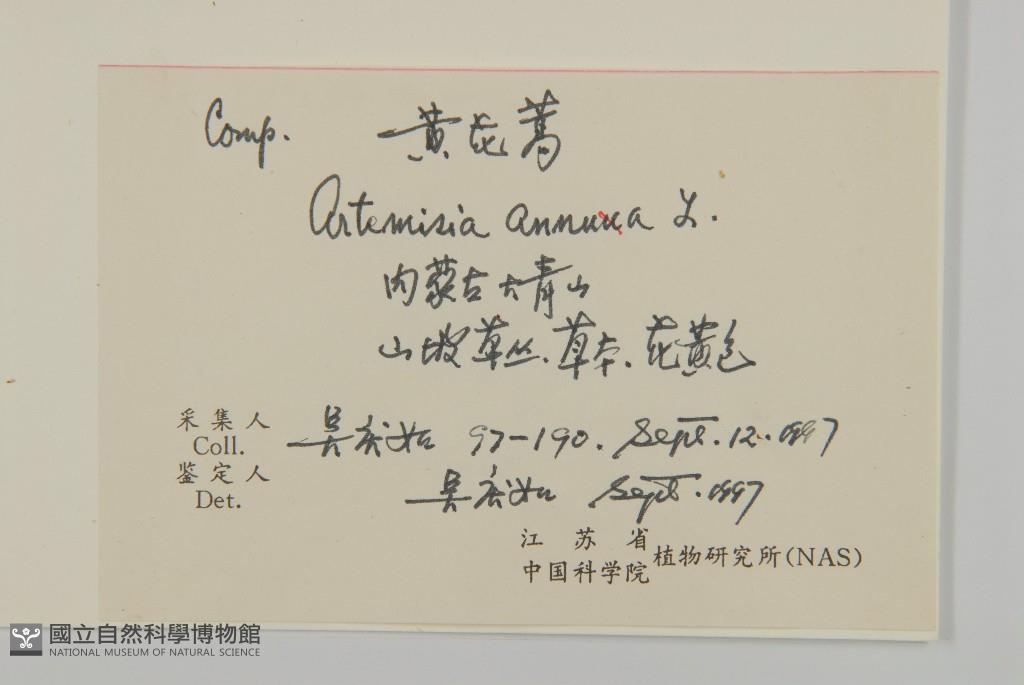 Comp. 黄花蒿
Artemisia annua L.
内蒙古大青山
山坡草丛. 草本. 花黄色
采集人
Coll. 吴 97-190. Sept. 12. 1997
鉴定人
Det. 吴 Sept. 1997
江苏省
中国科学院 植物研究所(NAS)
國立自然科學博物館
NATIONAL MUSEUM OF NATURAL SCIENCE